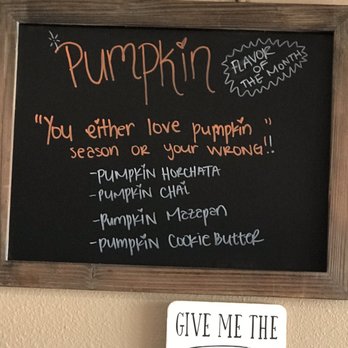 Pumpkin
FLAVOR OF
THE MONTH
"You either love pumpkin"
season or your WRONG!!
-PUMPKIN HORCHATA
-PUMPKIN CHAI
-Pumpkin Mazapan
-PUMPKIN Cookie Butter
GIVE ME THE